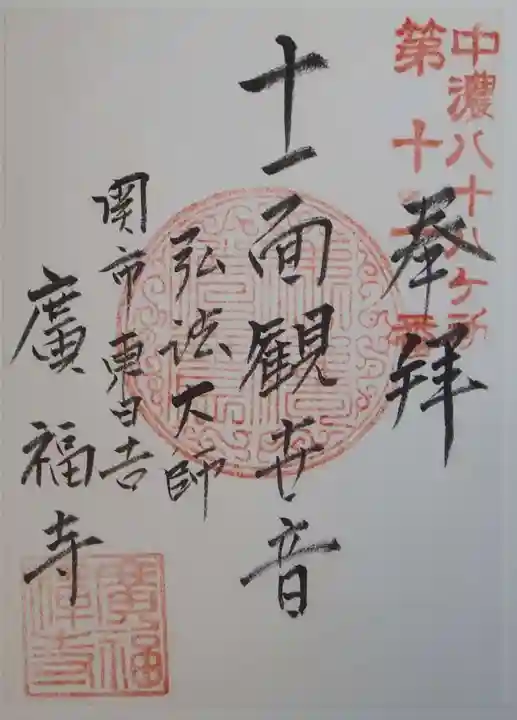 中濃八十八ヶ所
第十
番
奉拝
十一面観世音
弘法大師
関市東日吉
廣福寺
廣福
禅寺